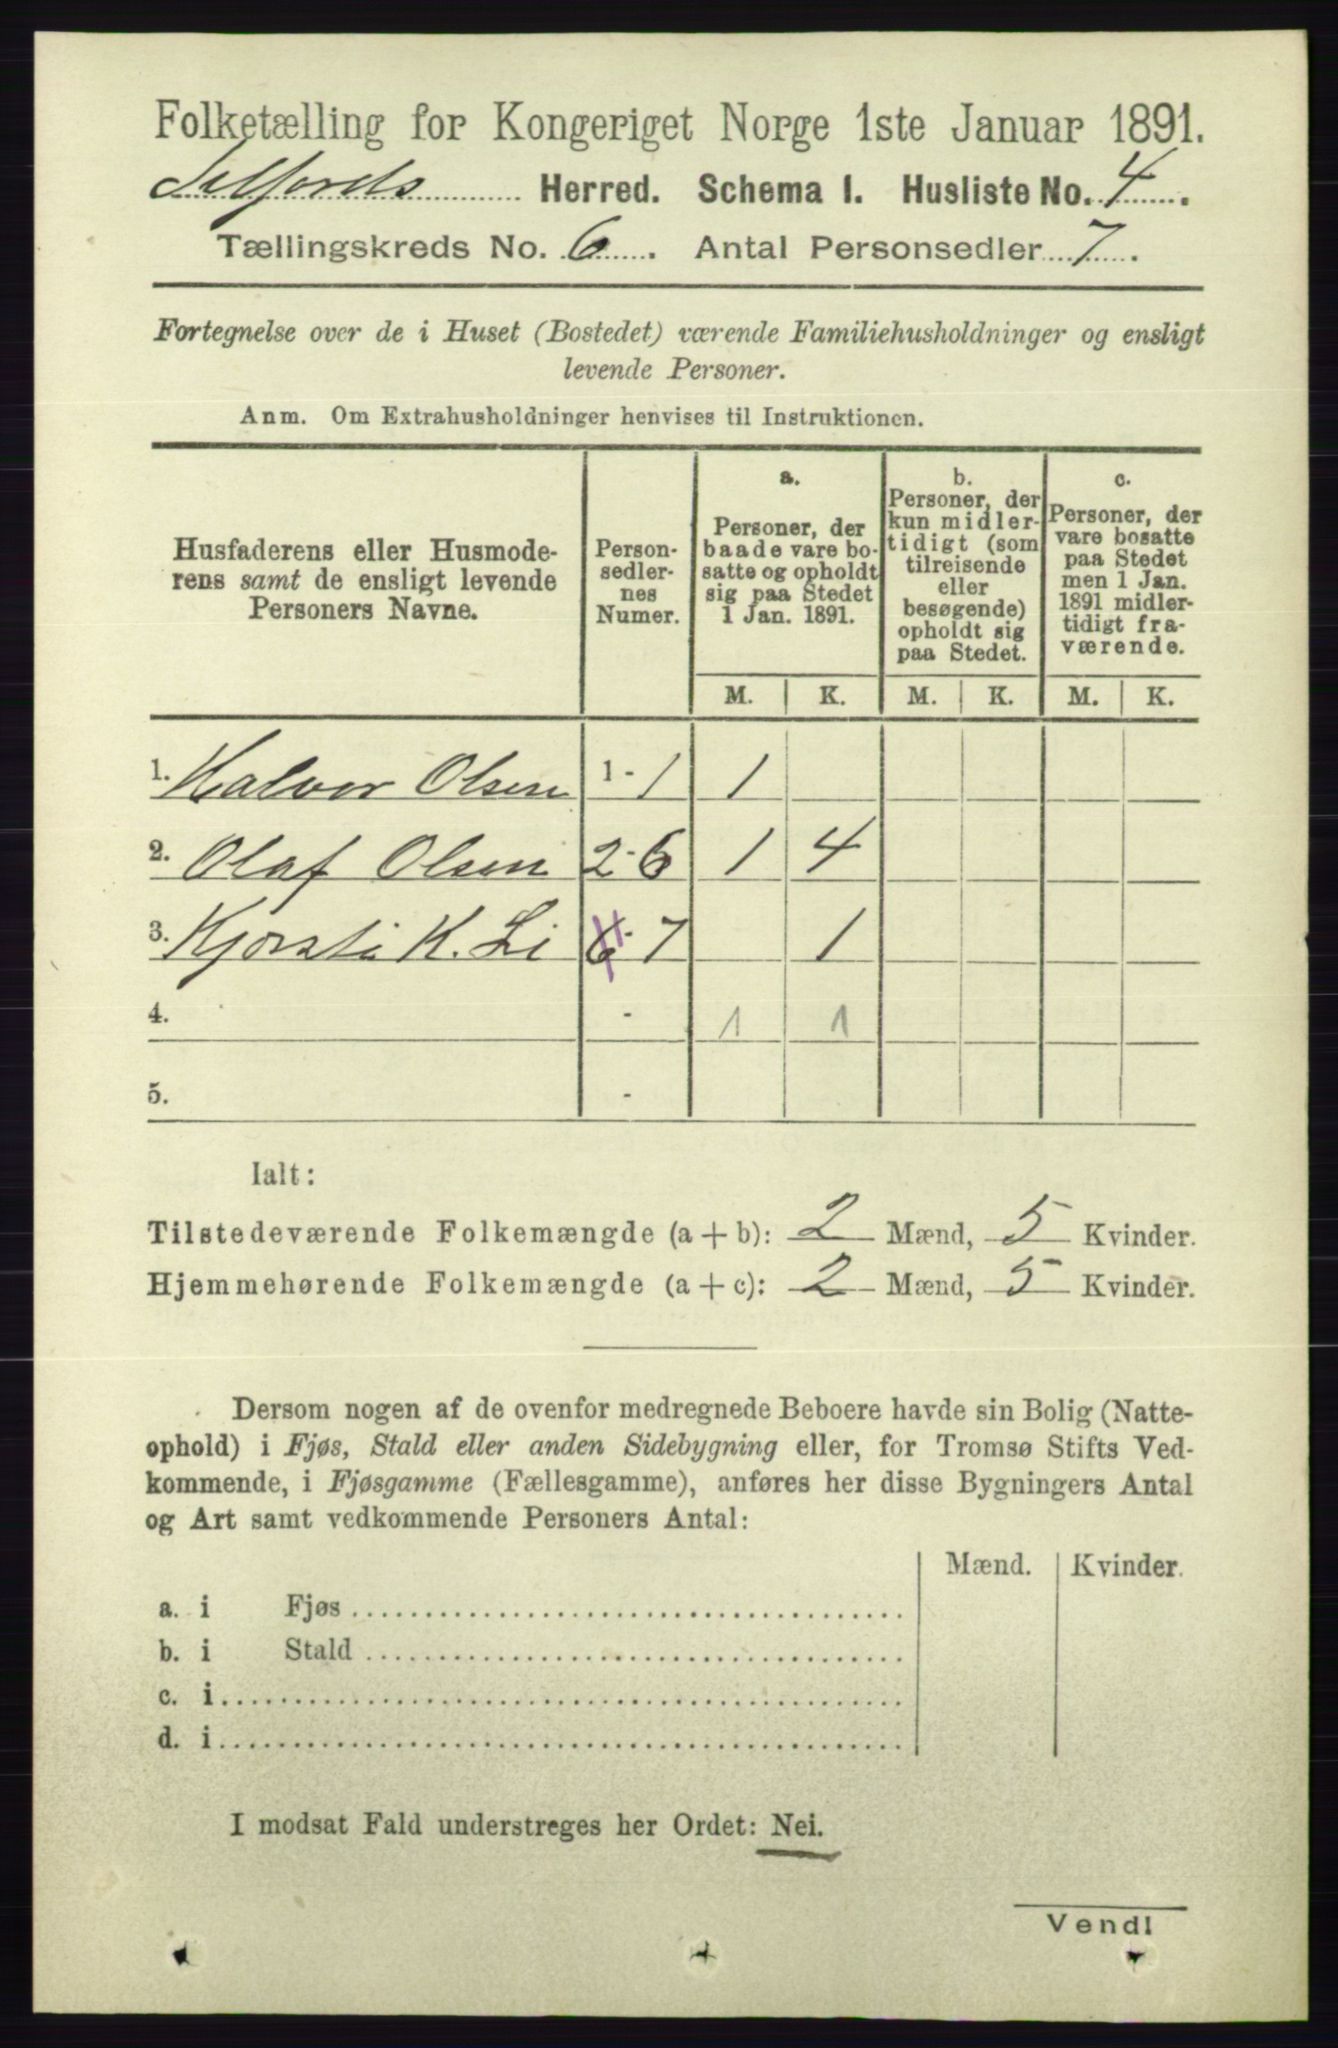 Folketælling for Kongeriget Norge 1ste Januar 1891.
Selfjords Herred. Schema I. Husliste No. 4.
Tællingskreds No. 6. Antal Personsedler 7.
Fortegnelse over de i Huset (Bostedet) værende Familiehusholdninger og ensligt
levende Personer.
Anm. Om Extrahusholdninger henvises til Instruktionen.
Husfaderens eller Husmode-
rens samt de ensligt levende
Personers Navne.
Person-
sedler-
nes
Numer.
a.
Personer, der
baade vare bo-
satte og opholdt
sig paa Stedet
1 Jan. 1891.
b.
Personer, der
kun midler-
tidigt (som
tilreisende
eller
besøgende)
opholdt sig
paa Stedet.
c.
Personer, der
vare bosatte
paa Stedet
men 1 Jan.
1891 midler-
tidigt fra-
værende.
M. K. M. K. M. K.
1. Halvor Olsen 1 - 1 1
2. Olaf Olsen 2 - 6 1 4
3. Kjorsti K. Li 6 - 7 1
4. - 1 1
5. -
Ialt:
Tilstedeværende Folkemængde (a + b): 2 Mænd, 5 Kvinder.
Hjemmehørende Folkemængde (a + c): 2 Mænd, 5 Kvinder.
Dersom nogen af de ovenfor medregnede Beboere havde sin Bolig (Natte-
ophold) i Fjøs, Stald eller anden Sidebygning eller, for Tromsø Stifts Ved-
kommende, i Fjøsgamme (Fællesgamme), anføres her disse Bygningers Antal
og Art samt vedkommende Personers Antal:
Mænd. Kvinder.
a. i Fjøs
b. i Stald
c. i
d. i
I modsat Fald understreges her Ordet: Nei.
Vend!